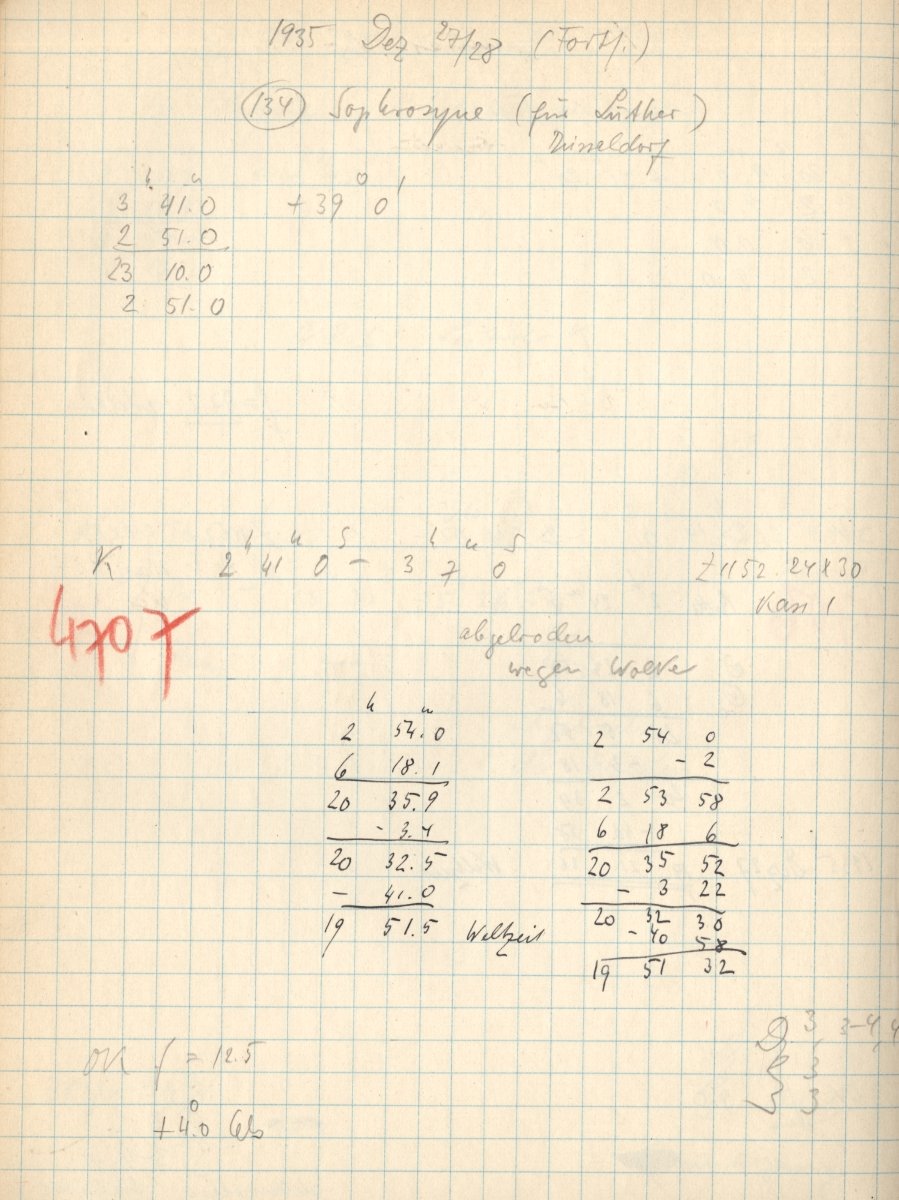 1935 Dez 27/28 (Fortf.)
(134) Sophrosyne (für Luther)
Düsseldorf
h m o '
3 41.0 +39 0
2 51.0
23 10.0
2 51.0
K 2h 41m 0s - 3h 7m 0s
24 x 30
Kass 1
4707
abgebrochen
wegen Wolken
h m
2 54.0
6 18.1
20 35.9
- 3.4
20 32.5
- 41.0
19 51.5 Weltzeit
2 54 0
- 2
2 53 58
6 18 6
20 35 52
- 3 22
20 32 30
- 40 58
19 51 32
D 3 3-4, 4
3
3
OK f = 12.5
+4.°0